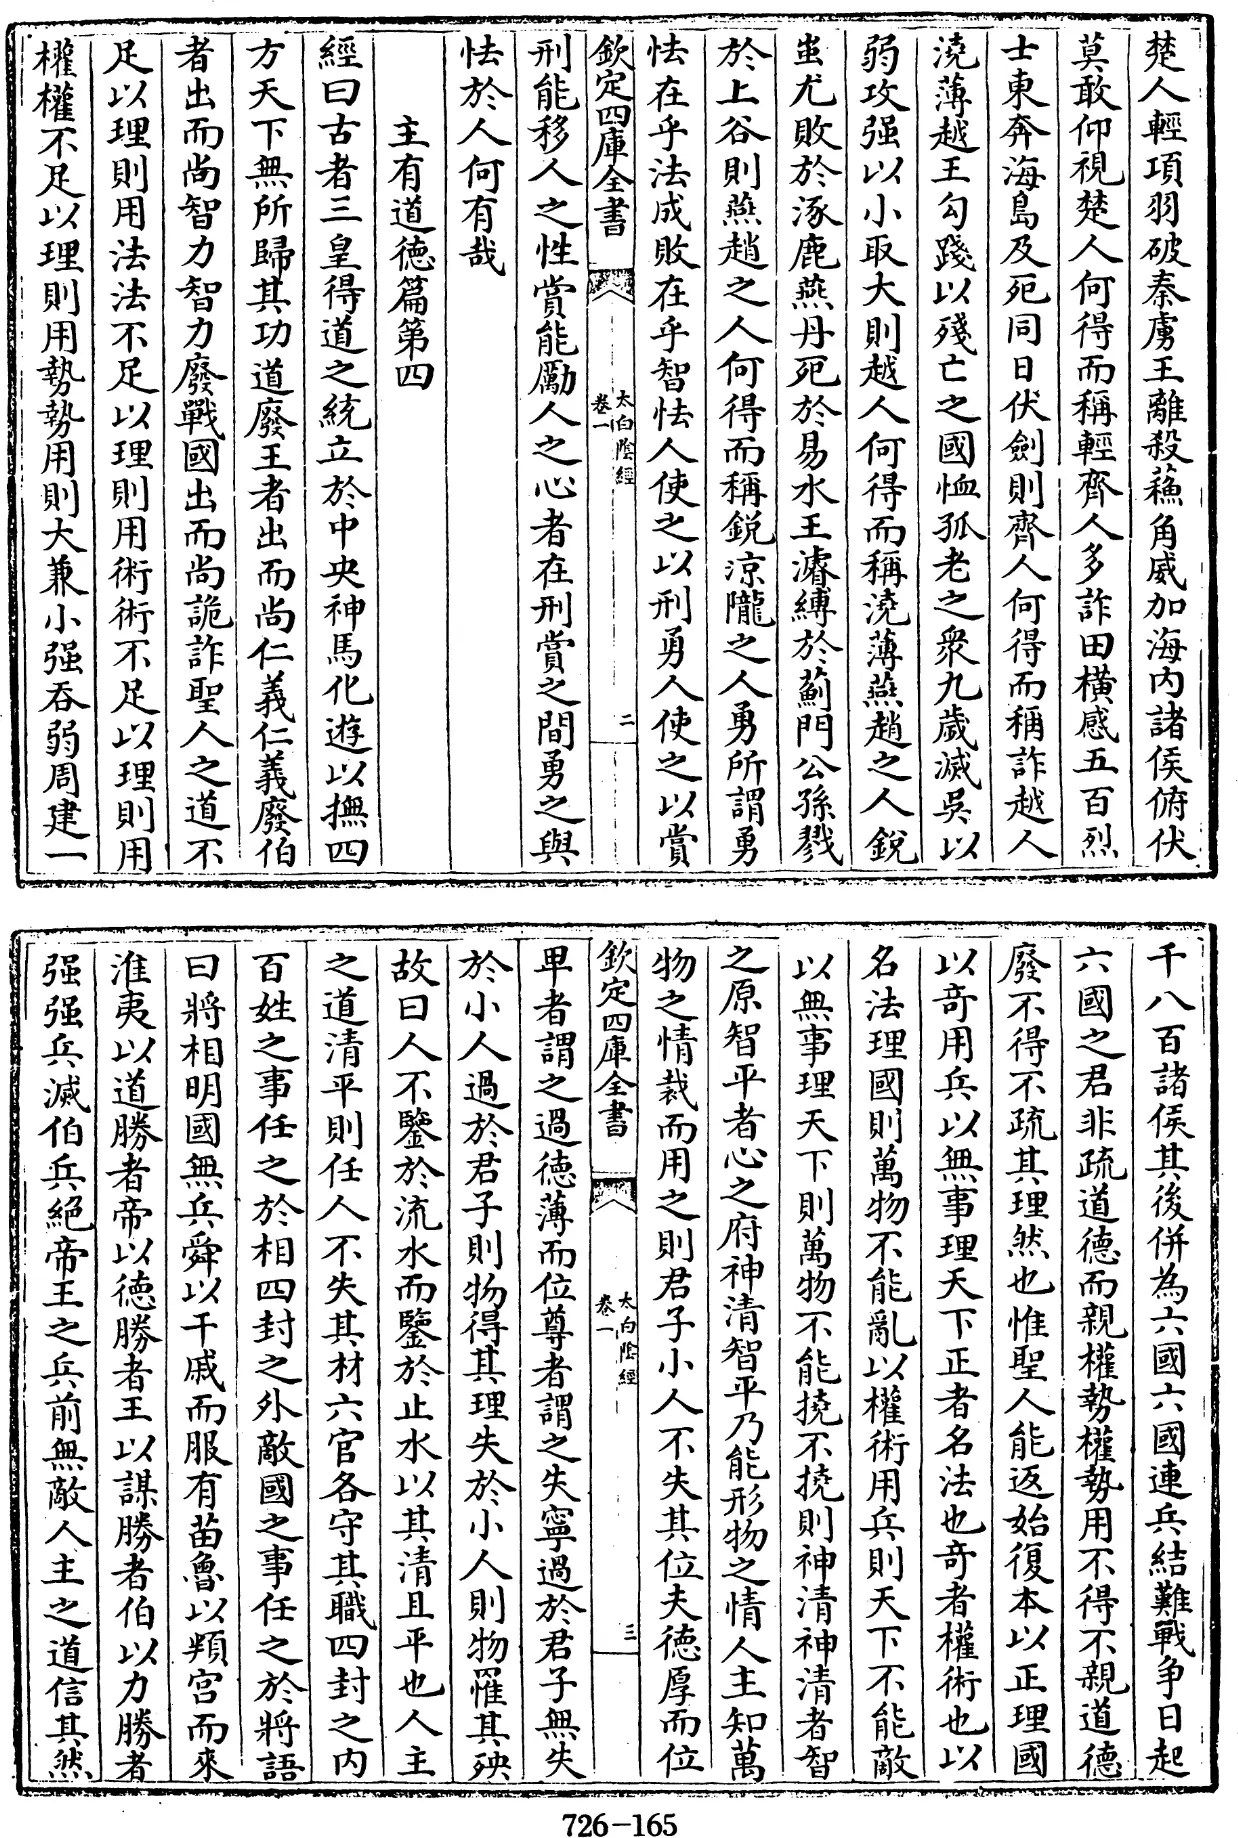 楚人輕項羽破秦虜王離殺蘓角威加海内諸侯俯伏
莫敢仰視楚人何得而稱輕齊人多詐田橫感五百烈
士東奔海島及死同日伏劍則齊人何得而稱詐越人
澆薄越王勾踐以殘亡之國恤孤老之衆九歲滅吳以
弱攻强以小取大則越人何得而稱澆薄燕趙之人鋭
蚩尤敗於涿鹿燕丹死於易水王濬縛於薊門公孫戮
於上谷則燕趙之人何得而稱鋭涼隴之人勇所謂勇
怯在乎法成敗在乎智怯人使之以刑勇人使之以賞
欽定四庫全書
太白隂經
卷一
二
刑能移人之性賞能勵人之心者在刑賞之間勇之與
怯於人何有哉
主有道德篇第四
經曰古者三皇得道之統立於中央神馬化遊以撫四
方天下無所歸其功道廢王者出而尚仁義仁義廢伯
者出而尚智力智力廢戰國出而尚詭詐聖人之道不
足以理則用法法不足以理則用術術不足以理則用
權權不足以理則用勢勢用則大兼小强吞弱周建一
千八百諸侯其後併為六國六國連兵結難戰争日起
六國之君非疏道德而親權勢權勢用不得不親道德
廢不得不疏其理然也惟聖人能返始復本以正理國
以竒用兵以無事理天下正者名法也竒者權術也以
名法理國則萬物不能亂以權術用兵則天下不能敵
以無事理天下則萬物不能撓不撓則神清神清者智
之原智平者心之府神清智平乃能形物之情人主知萬
物之情裁而用之則君子小人不失其位夫德厚而位
欽定四庫全書
太白隂經
卷一
三
卑者謂之過德薄而位尊者謂之失寧過於君子無失
於小人過於君子則物得其理失於小人則物罹其殃
故曰人不鑒於流水而鑒於止水以其清且平也人主
之道清平則任人不失其材六官各守其職四封之内
百姓之事任之於相四封之外敵國之事任之於將語
曰將相明國無兵舜以干戚而服有苗魯以頖宮而來
淮夷以道勝者帝以德勝者王以謀勝者伯以力勝者
强强兵滅伯兵絕帝王之兵前無敵人主之道信其然
726-165